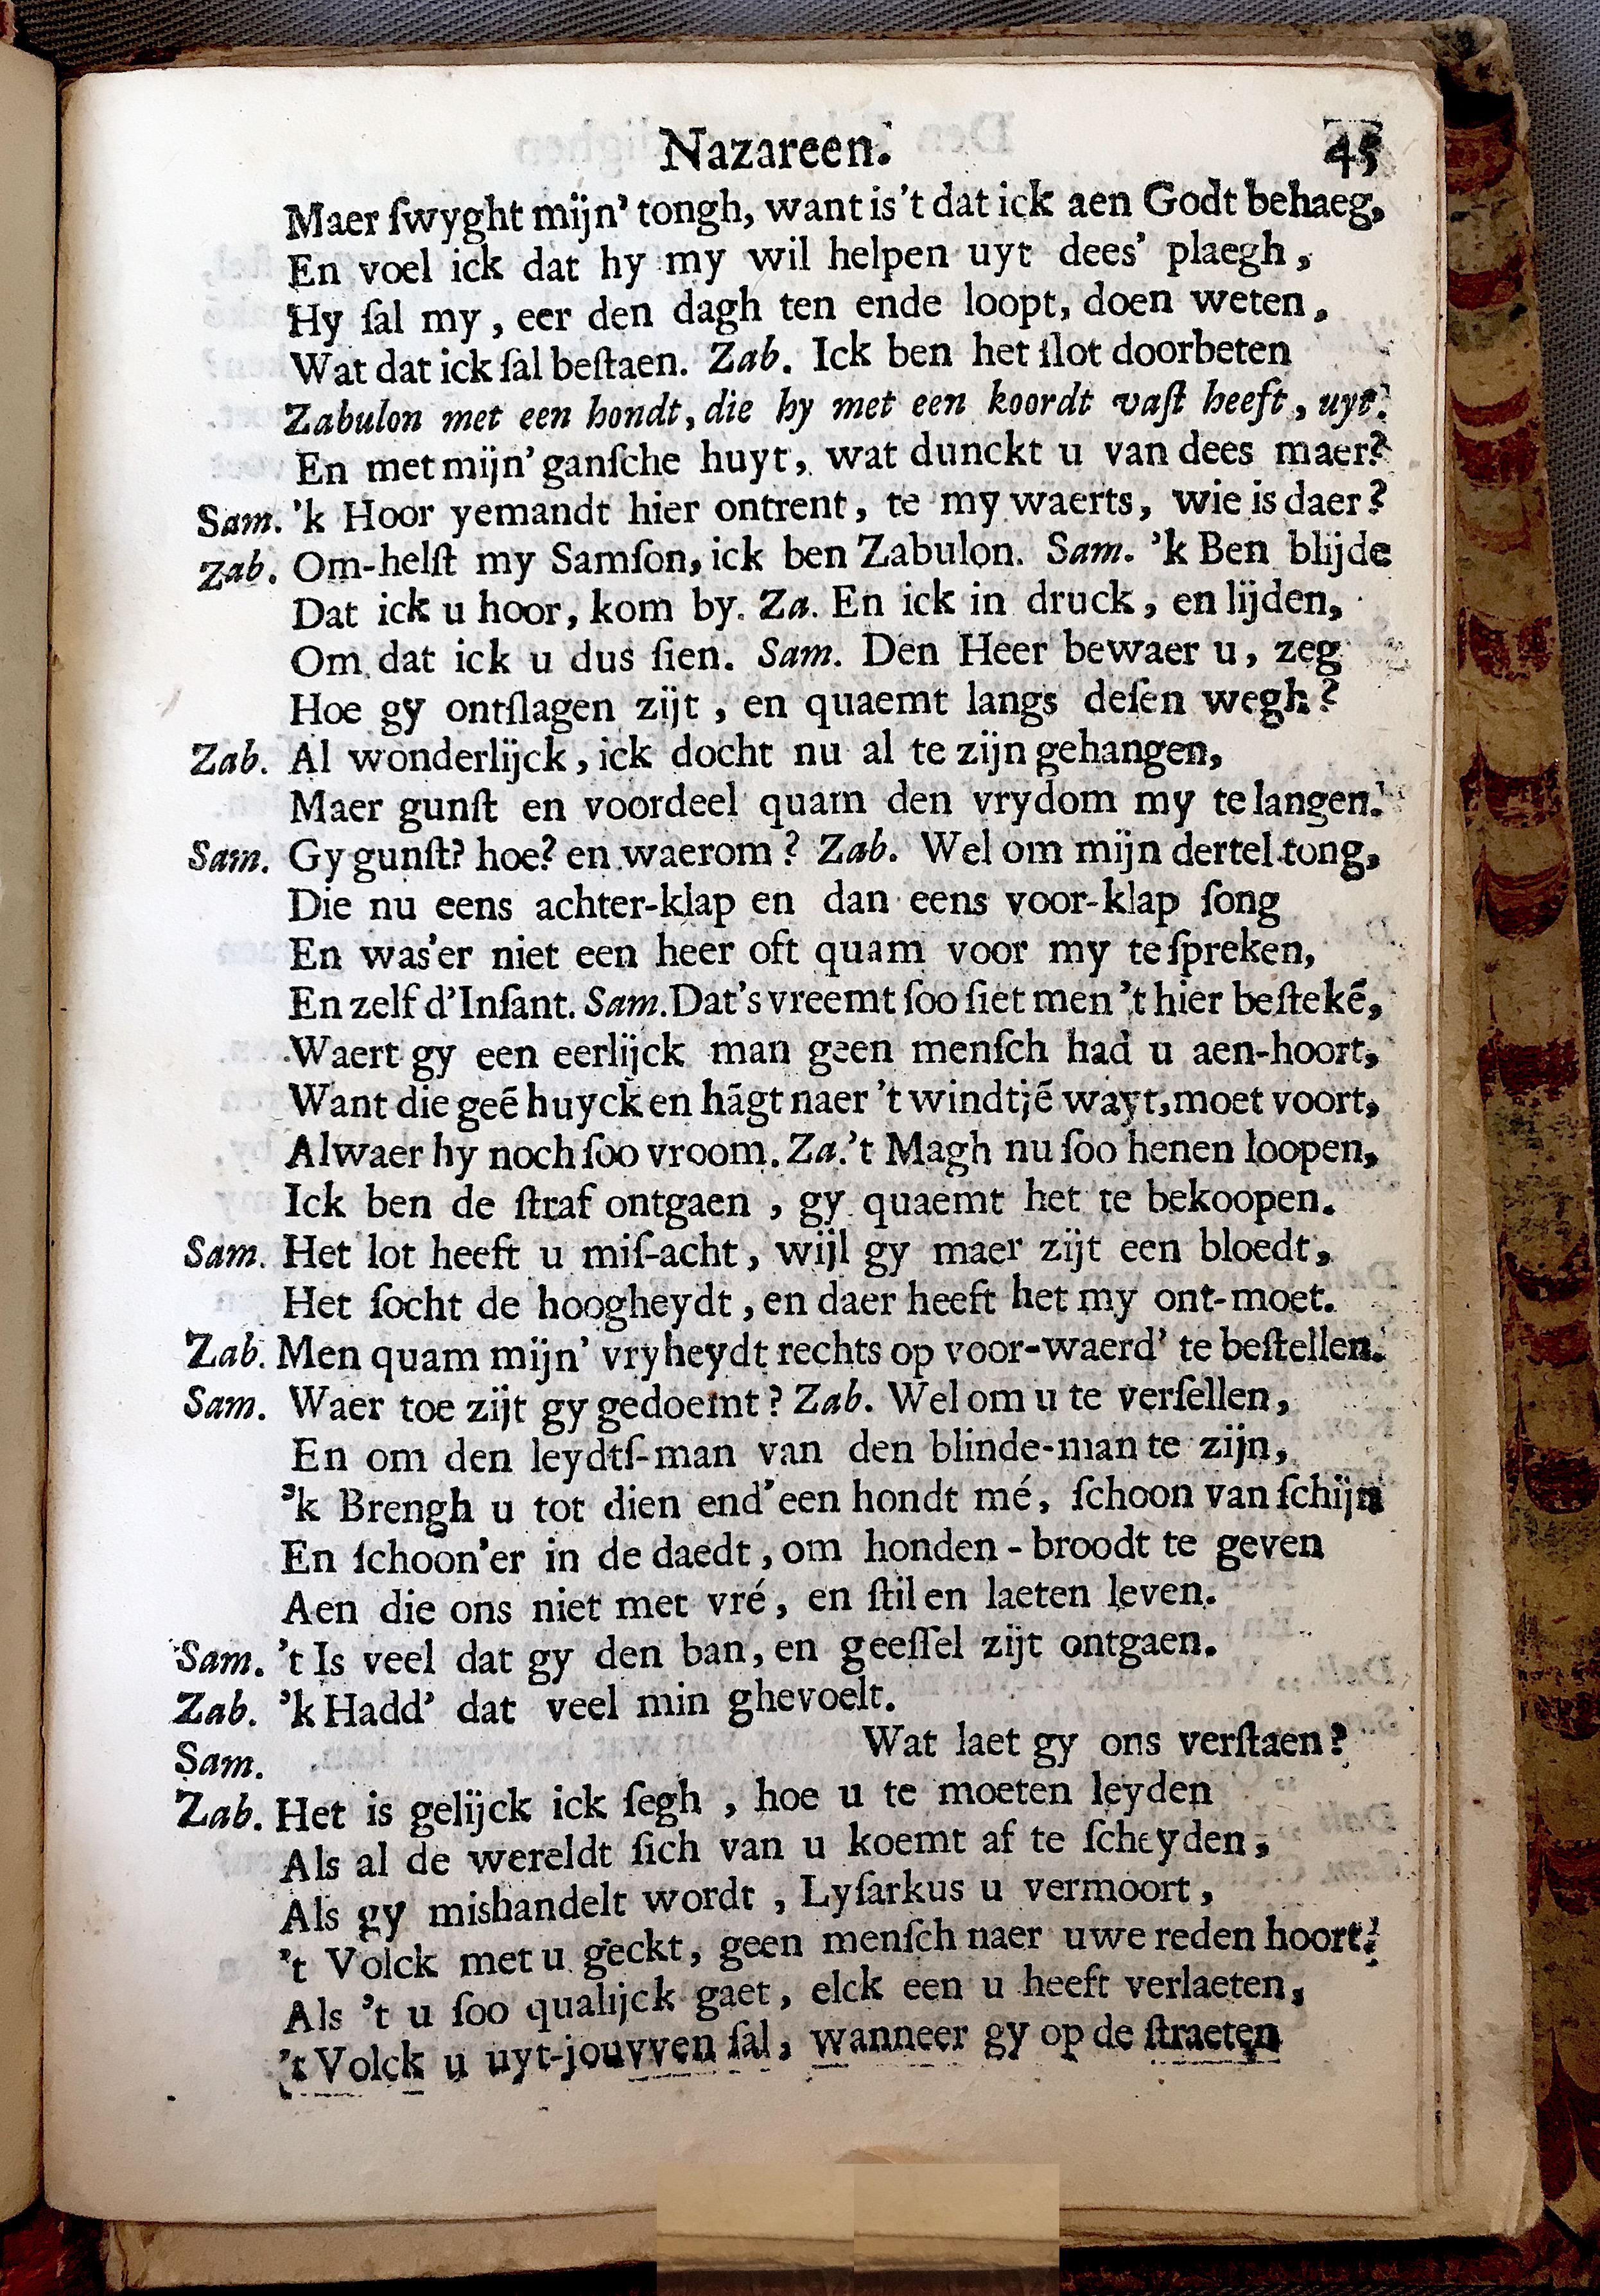 Nazareen. 45
Maer ſwyght mijn' tongh, want is't dat ick aen Godt behaeg,
En voel ick dat hy my wil helpen uyt dees' plaegh,
Hy ſal my, eer den dagh ten ende loopt, doen weten,
Wat dat ick ſal beſtaen. Zab. Ick ben het ſlot doorbeten
Zabulon met een hondt, die hy met een koordt vaſt heeft, uyt.
En met mijn' ganſche huyt, wat dunckt u van dees maer?
Sam. 'k Hoor yemandt hier ontrent, te my waerts, wie is daer?
Zab. Om-helſt my Samſon, ick ben Zabulon. Sam. 'k Ben blijde
Dat ick u hoor, kom by. Za. En ick in druck, en lijden,
Om dat ick u dus ſien. Sam. Den Heer bewaer u, zeg
Hoe gy ontſlagen zijt, en quaemt langs deſen wegh?
Zab. Al wonderlijck, ick docht nu al te zijn gehangen,
Maer gunſt en voordeel quam den vrydom my te langen.
Sam. Gy gunſt? hoe? en waerom? Zab. Wel om mijn dertel tong,
Die nu eens achter-klap en dan eens voor-klap ſong
En was'er niet een heer oft quam voor my te ſpreken,
En zelf d'Inſant. Sam. Dat's vreemt ſoo ſiet men 't hier beſtekẽ,
Waert gy een eerlijck man geen menſch had u aen-hoort,
Want die geẽ huyck en hãgt naer 't windtjẽ wayt, moet voort,
Alwaer hy noch ſoo vroom. Za. 't Magh nu ſoo henen loopen,
Ick ben de ſtraf ontgaen, gy quaemt het te bekoopen.
Sam. Het lot heeft u miſ-acht, wijl gy maer zijt een bloedt,
Het ſocht de hoogheydt, en daer heeft het my ont-moet.
Zab. Men quam mijn' vryheydt rechts op voor-waerd' te beſtellen.
Sam. Waer toe zijt gy gedoemt? Zab. Wel om u te verſellen,
En om den leydtſ-man van den blinde-man te zijn,
'k Brengh u tot dien end' een hondt mé, ſchoon van ſchijn
En ſchoon'er in de daedt, om honden-broodt te geven
Aen die ons niet met vré, en ſtil en laeten leven.
Sam. 't Is veel dat gy den ban, en geeſſel zijt ontgaen.
Zab. 'k Hadd' dat veel min ghevoelt.
Sam. Wat laet gy ons verſtaen?
Zab. Het is gelijck ick ſegh, hoe u te moeten leyden
Als al de wereldt ſich van u koemt af te ſcheyden,
Als gy mishandelt wordt, Lyſarkus u vermoort,
't Volck met u geckt, geen menſch naer uwe reden hoort.
Als 't u ſoo qualijck gaet, elck een u heeft verlaeten,
't Volck u uyt-jouvven ſal, wanneer gy op de ſtraeten